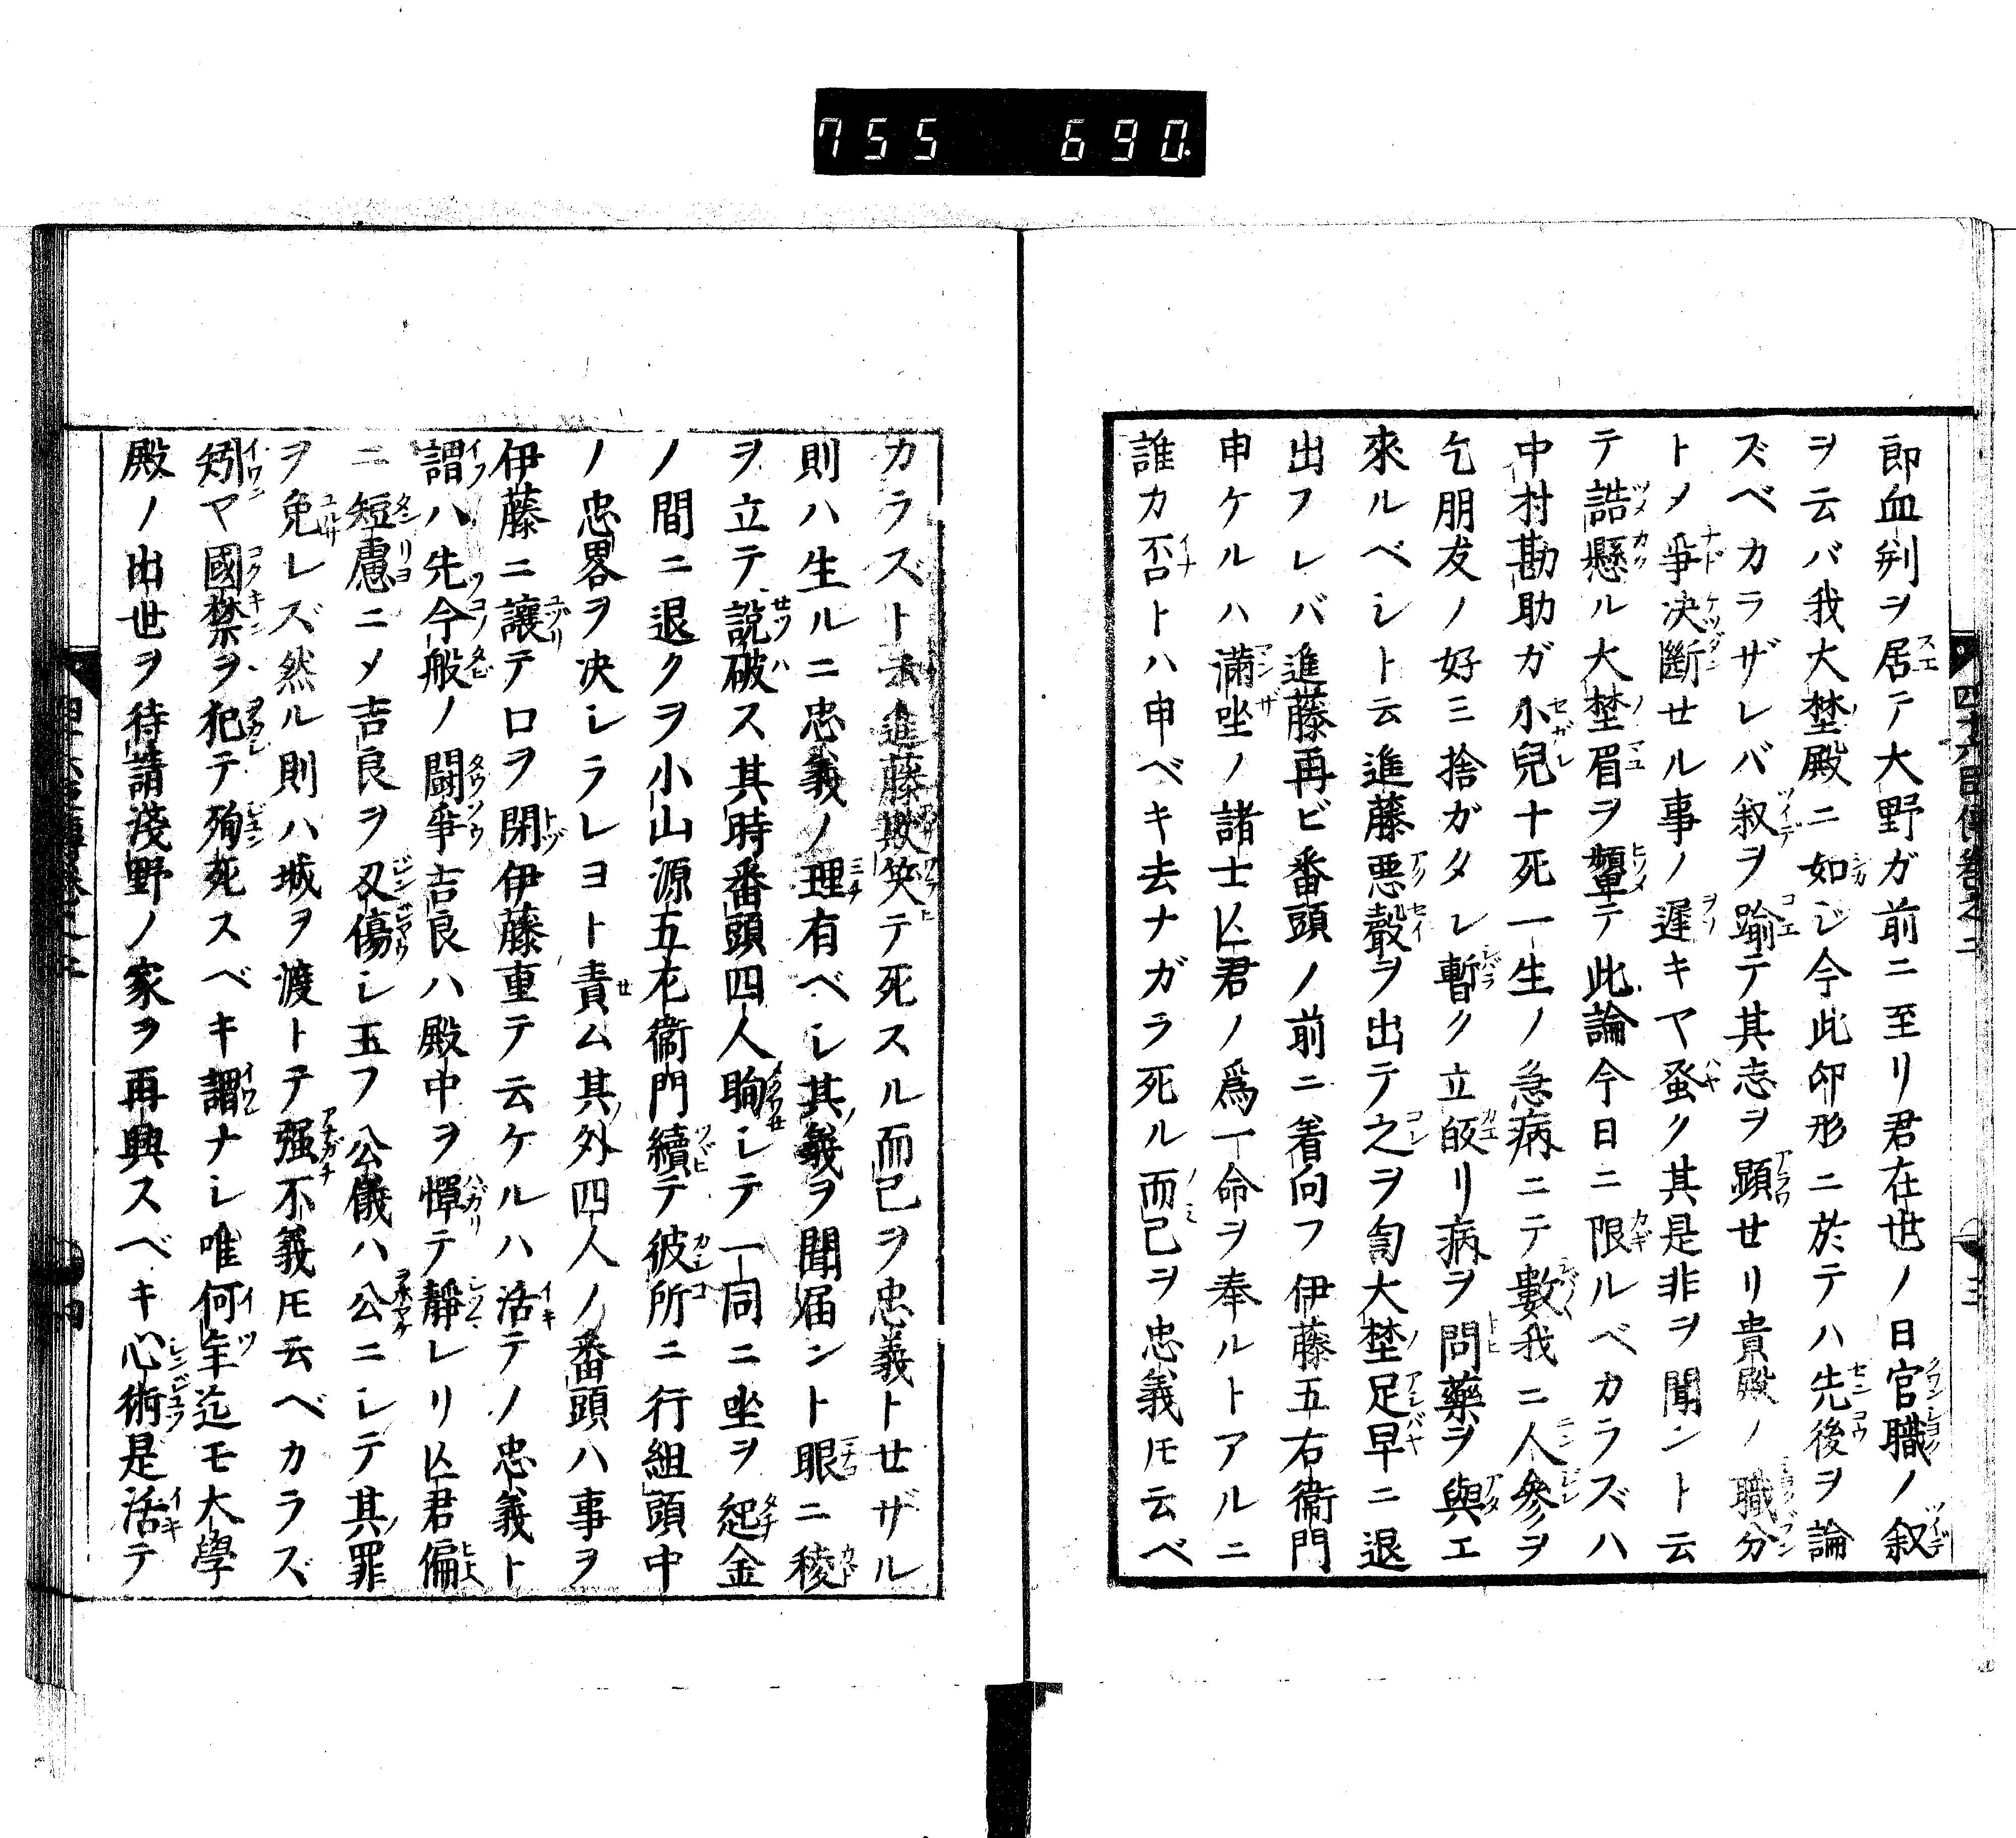 755 690
即血判ヲ居テ大野ガ前ニ至リ君在世ノ日官職ノ叙
ヲ云バ我大埜殿ニ如ジ今此印形ニ於テハ先後ヲ論
ズベカラザレバ叙ヲ踰テ其志ヲ顕セリ貴殿ノ職分
トメ爭决斷せル事ノ遅キヤ蚤ク其是非ヲ聞ント云
テ詰懸ル大埜眉ヲ顰テ此論今日ニ限ルベカラズハ
中村勘助ガ小兒十死一生ノ急病ニテ數我ニ人參ヲ
乞朋友ノ好ミ捨ガタレ暫ク立皈リ病ヲ問藥ヲ與エ
來ルベレト云進藤悪聲ヲ出テ之ヲ訇大埜足早ニ退
出フレバ進藤再ビ番頭ノ前ニ着向フ伊藤五右衞門
申ケルハ満坐ノ諸士亡君ノ爲一命ヲ奉ルトアルニ
誰カ否トハ申ベキ去ナガラ死ル而已ヲ忠義𪜈云ベ
カラズト進藤欺笑テ死スル而已ヲ忠義トせザル
則ハ生ルニ忠義ノ理有ベレ其義ヲ聞届ント眼ニ稜
ヲ立テ説破ス其時番頭四人眴レテ一同ニ坐ヲ起金
ノ間ニ退クヲ小山源五左衞門續テ彼所ニ行組頭中
ノ忠畧ヲ决レラレヨト責ム其外四人ノ番頭ハ事ヲ
伊藤ニ讓テ口ヲ閉伊藤重テ云ケルハ活テノ忠義ト
謂ハ先今般ノ闘爭吉良ハ殿中ヲ憚テ靜レリ亡君偏
ニ短慮ニメ吉良ヲ刄傷レ玉フ公儀ハ公ニレテ其罪
ヲ免レズ然ル則ハ城ヲ渡トテ强不義𪜈云ベカラズ
矧ヤ國禁ヲ犯テ殉死スベキ謂ナレ唯何年迄モ大學
殿ノ出世ヲ待請淺野ノ家ヲ再興スベキ心術是活テ